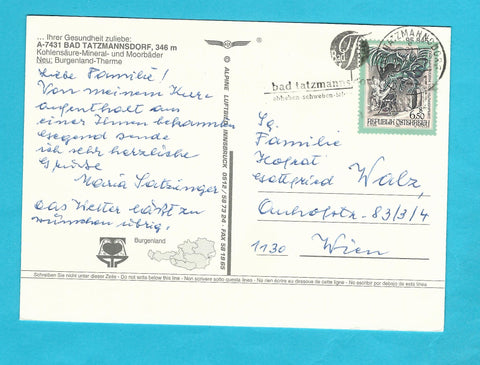 ... Ihrer Gesundheit zuliebe:
A-7431 BAD TATZMANNSDORF, 346 m
Kohlensäure-Mineral- und Moorbäder
Neu: Burgenland-Therme
Liebe Familie!
Von meinem Kur-
aufenthalt aus
einer Ihnen bekannten
Gegend sende
ich sehr herzliche
Grüße
Maria Satzinger
Das Wetter läßt zu
wünschen übrig.
Burgenland
© ALPINE LUFTBILD INNSBRUCK
TATZMANNSDORF
Bad
bad tatzmanns
abheben-schweben
6.50
REPUBLIK ÖSTERREICH
Sg.
Familie
Hofrat
Gottfried Walz,
83/3/4
1130 Wien
Schreiben Sie nicht unter dieser Zeile - Do not write below this line - Non scrivere sotto questa linea - Ne rien écrire au dessous de cette ligne - No escribir por debajo de esta línea